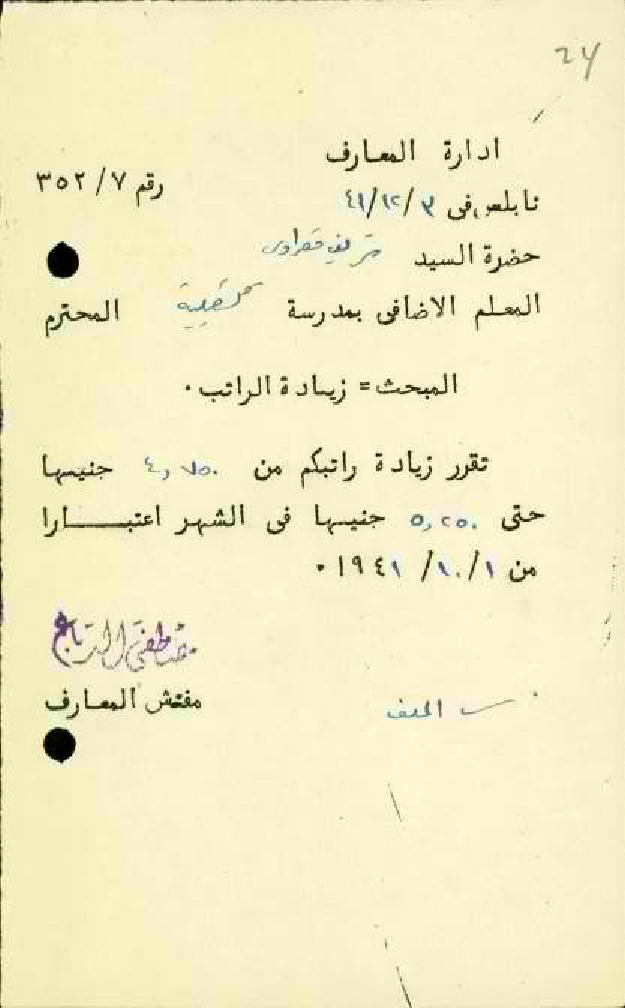 24
ادارة المعارف
رقم ٣٥٢/٧
نابلس في ٤١/١٢/٣
حضرة السيد شريف
المعلم الاضافي بمدرسة قلقيلية المحترم
المبحث = زيادة الراتب ٠
تقرر زيادة راتبكم من ٤,٧٥٠ جنيها
حتى ٥,٢٥٠ جنيها في الشهر اعتبـــارا
من ١٩٤١/١٠/١ ٠
مصطفى الدباغ
مفتش المعارف
الملف